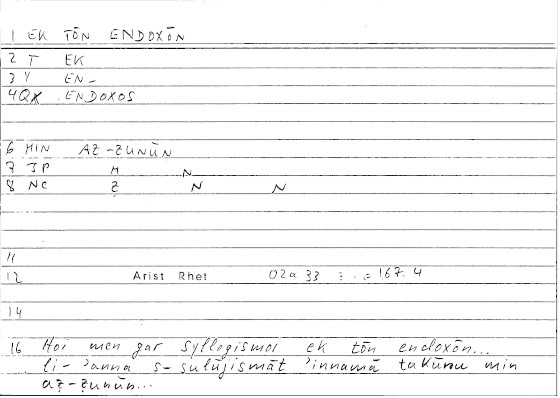 1 EK TŌN ENDOXŌN
2 T EK
3 Y EN-
4 QX ENDOXOS
6 MIN AẒ-ẒUNŪN
7 JP M N
8 NC Ẓ N N
11
12 Arist Rhet 02a 33 167.4
14
16 Hoi men gar syllogismoi ek tōn endoxōn...
li-'anna s-sulūjismāt 'innamā takūnu min
aẓ-ẓunūn...